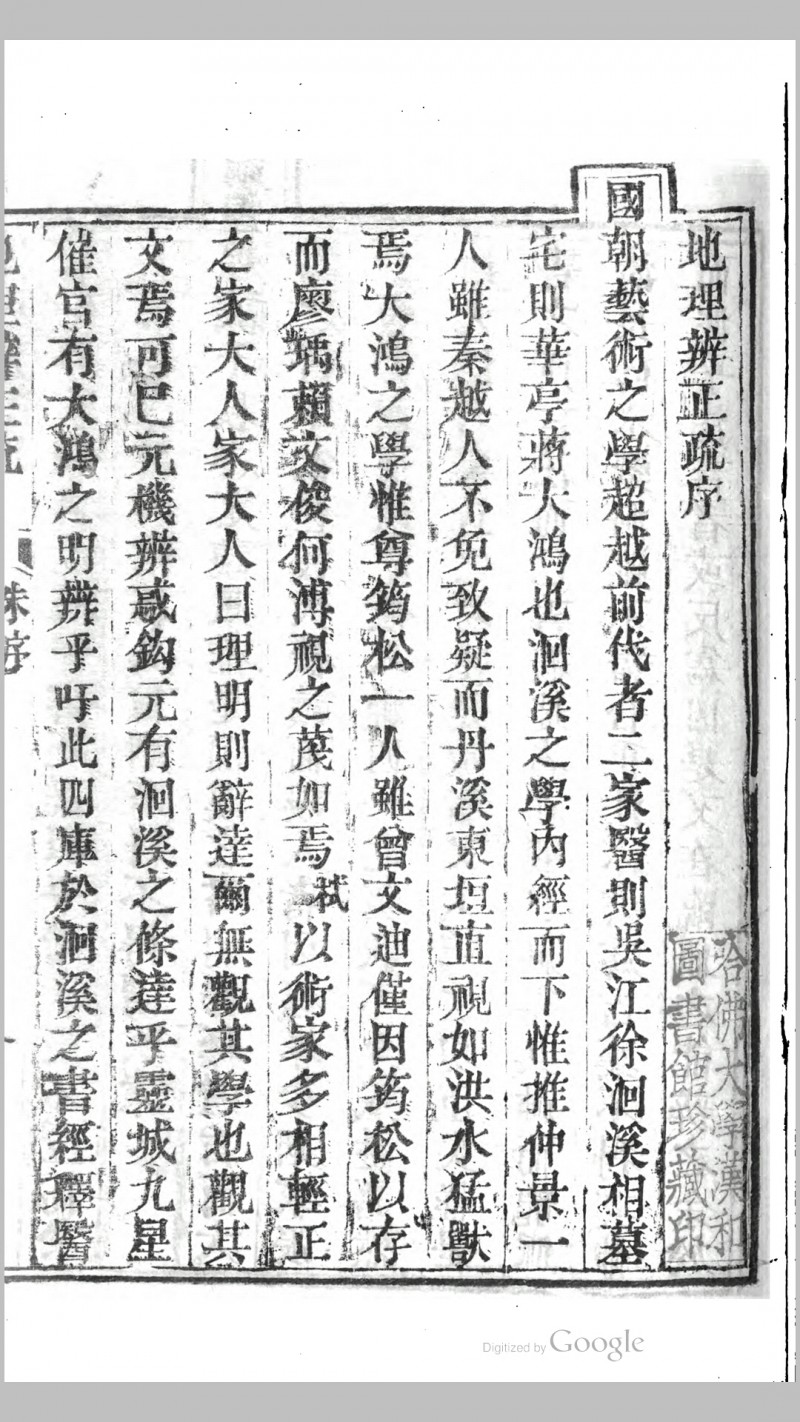 地理辨正疏序
國朝藝術之學超越前代者二家醫則吳江徐洄溪相墓
宅則華亭蔣大鴻也洄溪之學內經而下惟推仲景一
人雖秦越人不免致疑而丹溪東垣直視如洪水猛獸
焉大鴻之學惟尊筠松一人雖曾文迪僅因筠松以存
而廖瑀賴文俊何溥視之蔑如焉栻以術家多相輕正
之家大人家大人曰理明則辭達爾無觀其學也觀其
文焉可已元機辨惑鈎元有洄溪之條達乎靈城九星
催官有大鴻之明辨乎吁此四庫於洄溪之書經釋醫
地理辨正疏
朱序
哈佛大學漢和
圖書館珍藏印
Digitized by Google